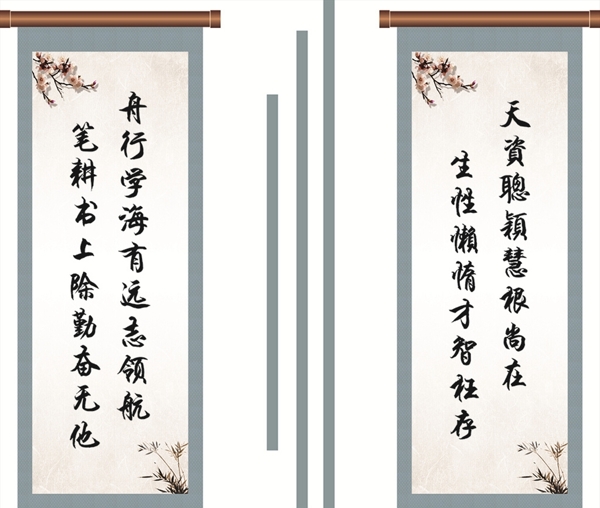 天資聰穎慧根尚在
生性懒惰才智枉存
舟行学海有远志领航
笔耕书上除勤奋无他